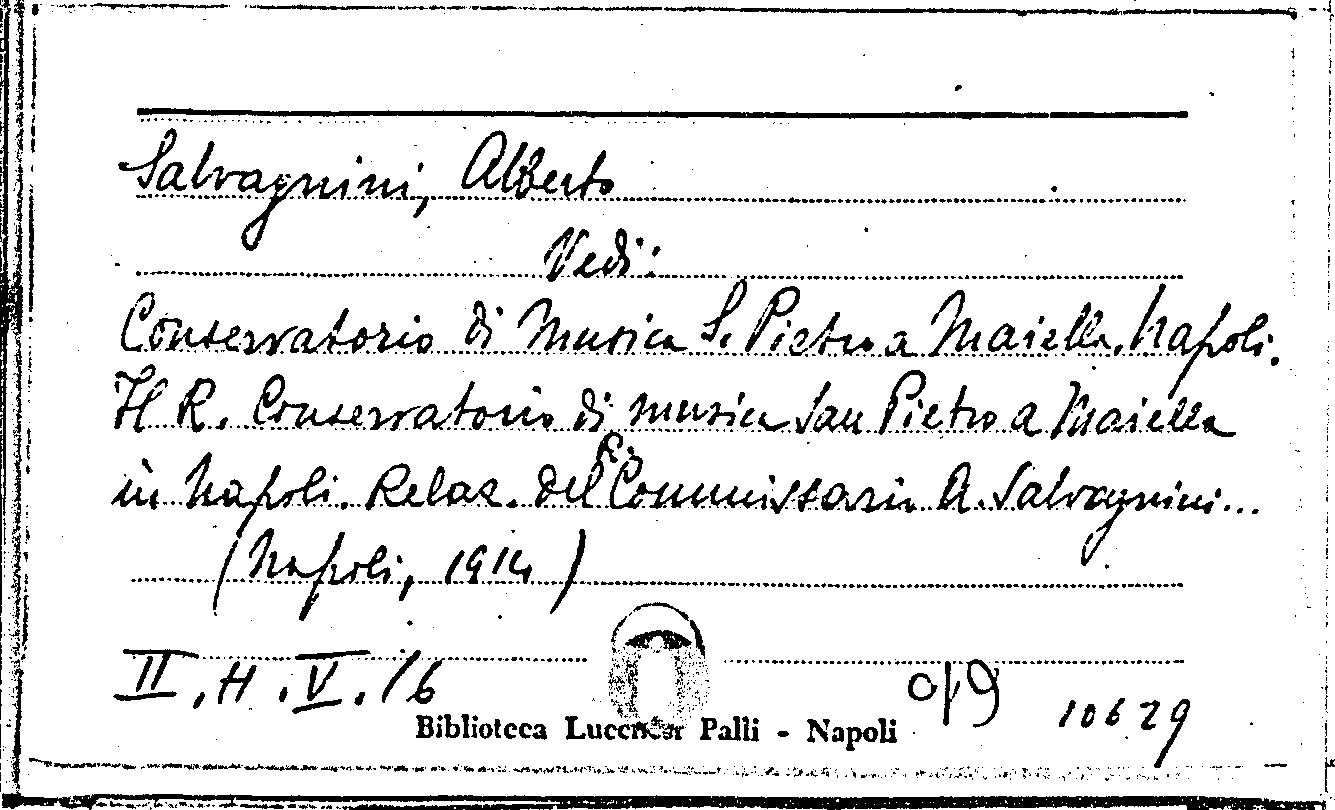 Salvagnini, Alberto
Vedi:
Conservatorio di Musica S. Pietro a Maiella. Napoli.
Il R. Conservatorio di musica San Pietro a Maiella
R.
in Napoli. Relaz. del Commissario A. Salvagnini...
(Napoli, 1914)
II.H.V.16
10629
Biblioteca Lucchesi Palli - Napoli